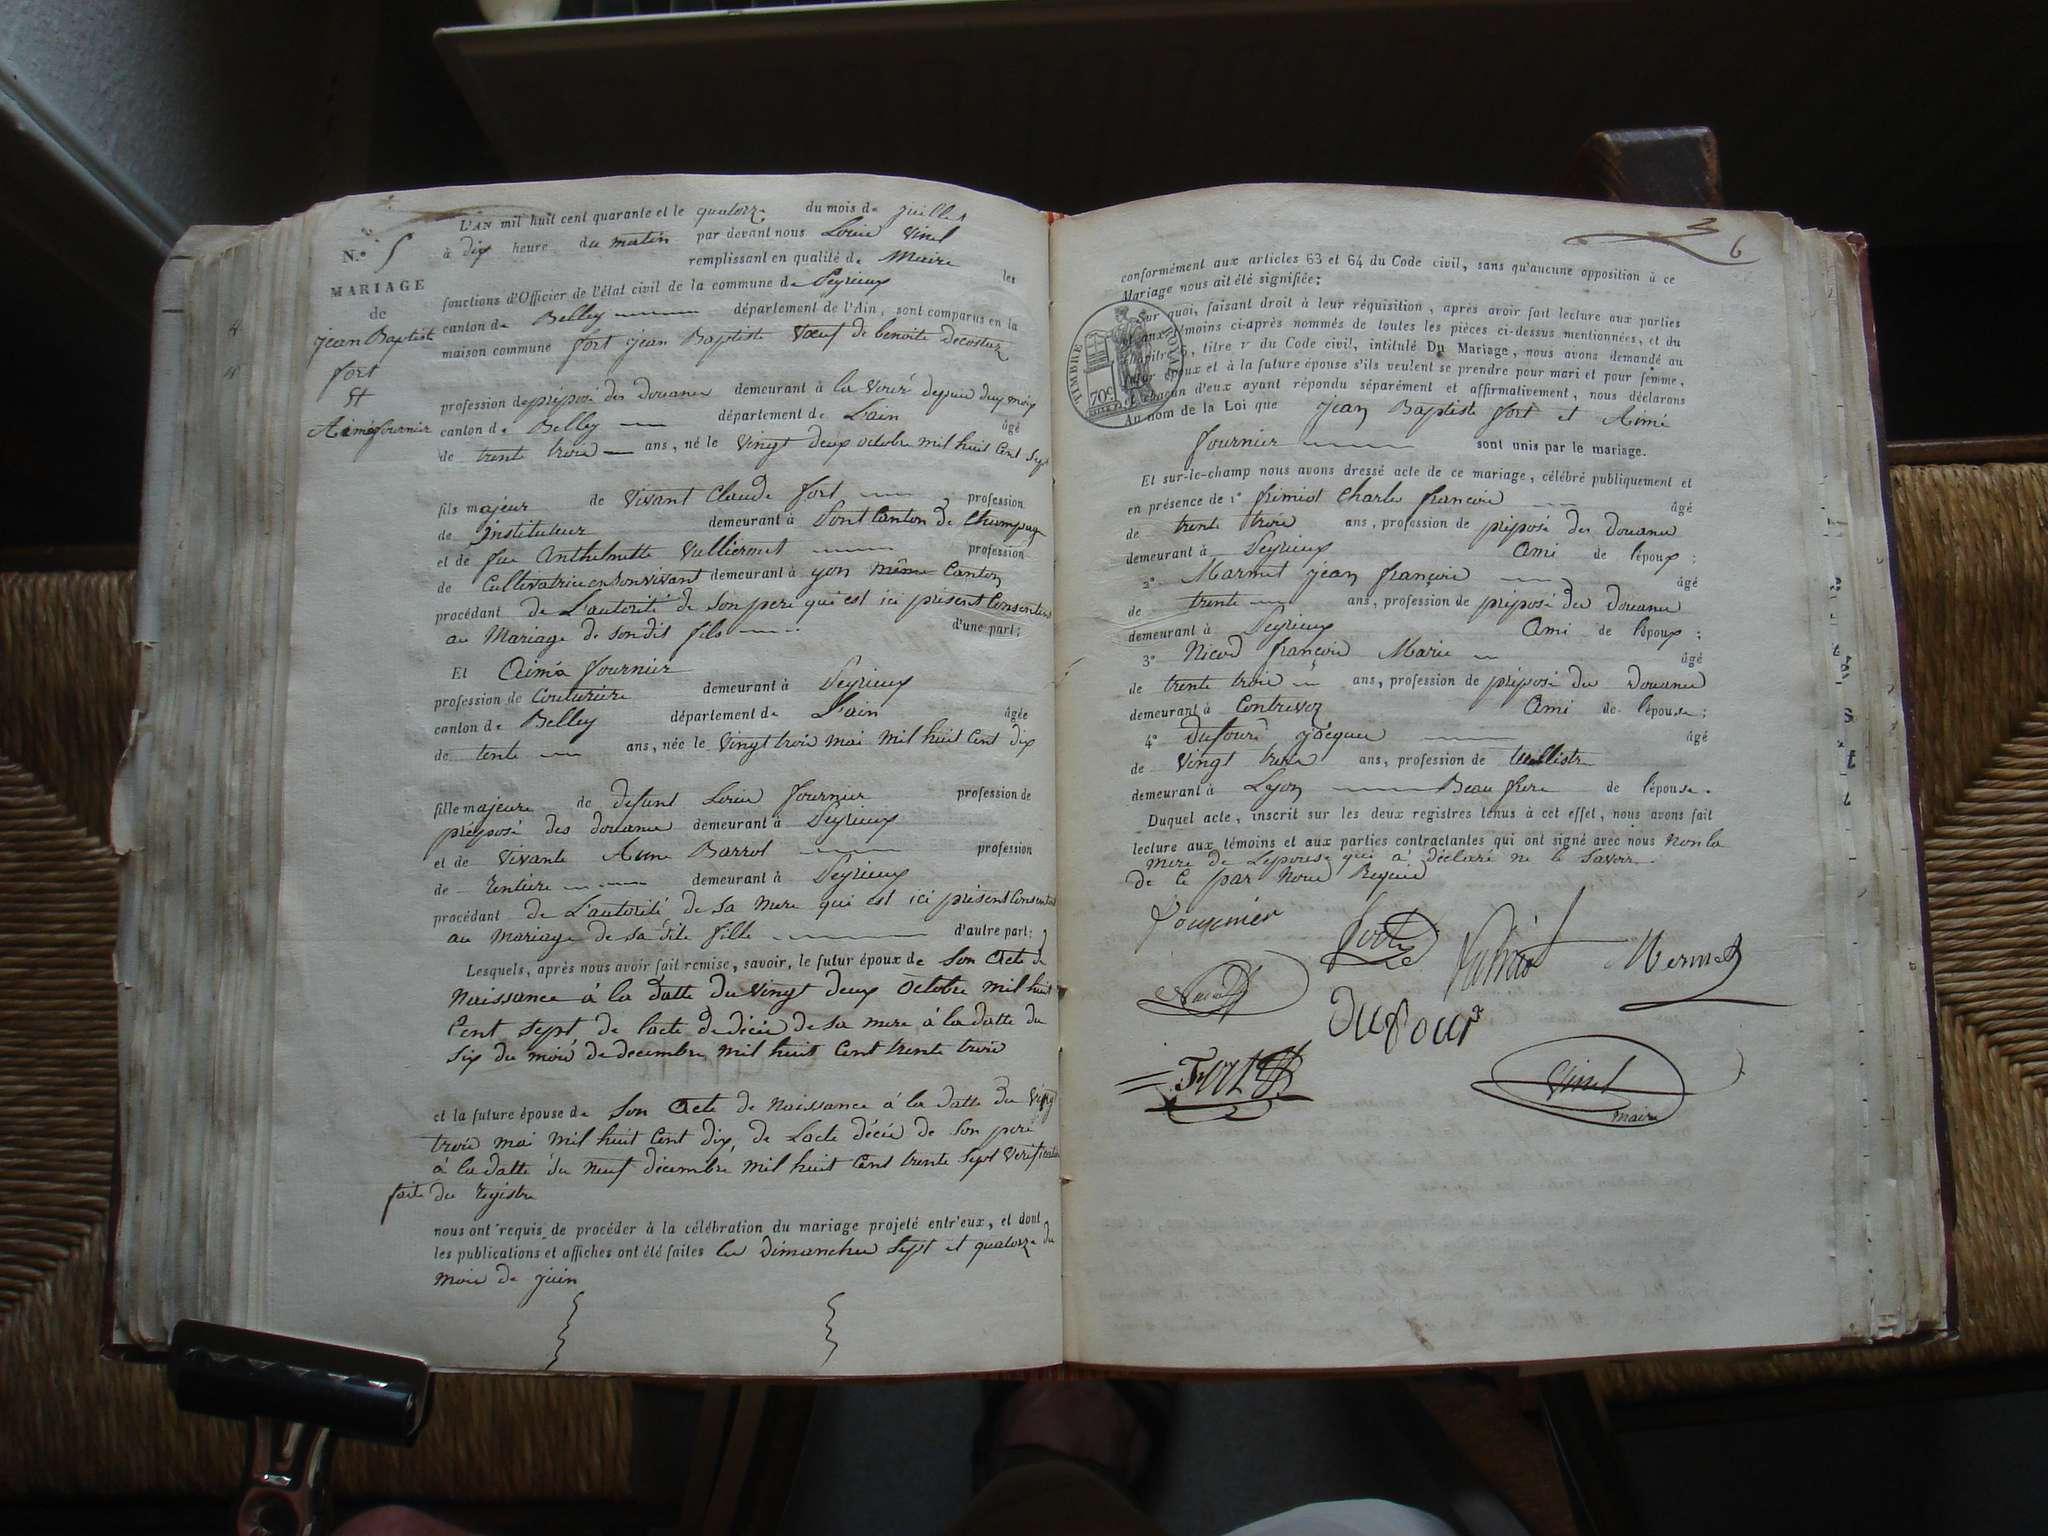 N.° 5
MARIAGE
de
jean Baptiste
fort
Et
Aimé fournier
L'AN mil huit cent quarante et le quatorze du mois de juillet
à dix heure du matin par devant nous Louis Vinel
remplissant en qualité de Maire les
fonctions d'Officier de l'état civil de la commune de Peyrieux
canton de Belley département de l'Ain, sont comparus en la
maison commune fort jean Baptiste Vœuf de benoite decostaz
profession de préposé des douanes demeurant à la depuis deux mois
canton de Belley département de L'ain âgé
de trente trois ans, né le vingt deux octobre mil huit Cent Sept
fils majeur de vivant Claude fort profession
de Instituteur demeurant à Pont Canton de Champagne
et de fue Anthelmette Vulliermet profession
de Cultivatrice en son vivant demeurant à yon même Canton
procédant de L'autorité de Son pere qui est ici présent Consentent
au Mariage de son dit fils d'une part;
Et Aimé fournier
profession de Couturière demeurant à Peyrieux
canton de Belley département de L'ain âgée
de tente ans, née le vingt trois mai mil huit Cent dix
fille majeure de defunt Louis fournier profession de
préposé des douanes demeurant à Peyrieux
et de vivante Anne Barrol profession
de rentière demeurant à Peyrieux
procédant de L'autorité de Sa mere qui est ici présent Consentent
au mariage de sa dite fille d'autre part;
Lesquels, après nous avoir fait remise, savoir, le futur époux de Son Acte de
Naissance à la datte du vingt deux Octobre mil huit
Cent Sept de lacte de décés de Sa mere à la datte du
Six du mois de decembre mil huit Cent trente trois
et la future épouse de Son Acte de Naissance à la datte du vingt
trois mai mil huit Cent dix, de Lacte décés de Son pere
à la datte du neuf décembre mil huit Cent trente Sept Verification
faite du registre
nous ont requis de procéder à la célébration du mariage projeté entr'eux, et dont
les publications et affiches ont été faites les dimanches Sept et quatorze du
mois de juin
6
conformément aux articles 63 et 64 du Code civil, sans qu'aucune opposition à ce
Mariage nous ait été signifiée;
TIMBRE ROYAL
70c
Sur quoi, faisant droit à leur réquisition, après avoir fait lecture aux parties
et aux témoins ci-après nommés de toutes les pièces ci-dessus mentionnées, et du
chapitre 6, titre v du Code civil, intitulé Du Mariage, nous avons demandé au
futur époux et à la future épouse s'ils veulent se prendre pour mari et pour femme,
et chacun d'eux ayant répondu séparément et affirmativement, nous déclarons
Au nom de la Loi que jean Baptiste fort et Aimé
fournier sont unis par le mariage.
Et sur-le-champ nous avons dressé acte de ce mariage, célébré publiquement et
en présence de 1° Charles françois âgé
de trente trois ans, profession de préposé des douanes
demeurant à Peyrieux Ami de l'époux;
2° Marmet jean françois âgé
de trente ans, profession de préposé des douanes
demeurant à Peyrieux Ami de l'époux;
3° Nicod françois Marie âgé
de trente trois ans, profession de préposé des douanes
demeurant à Contrevoz Ami de l'épouse;
4° dufours jacques âgé
de vingt trois ans, profession de tullistre
demeurant à Lyon Beau frere de l'épouse.
Duquel acte, inscrit sur les deux registres tenus à cet effet, nous avons fait
lecture aux témoins et aux parties contractantes qui ont signé avec nous Non la
mere de Lepouse qui a déclaré ne le Savoir
de Ce par Nous Requis
fournier
fort
Mermet
Dufour
Fort
Vinel
maire